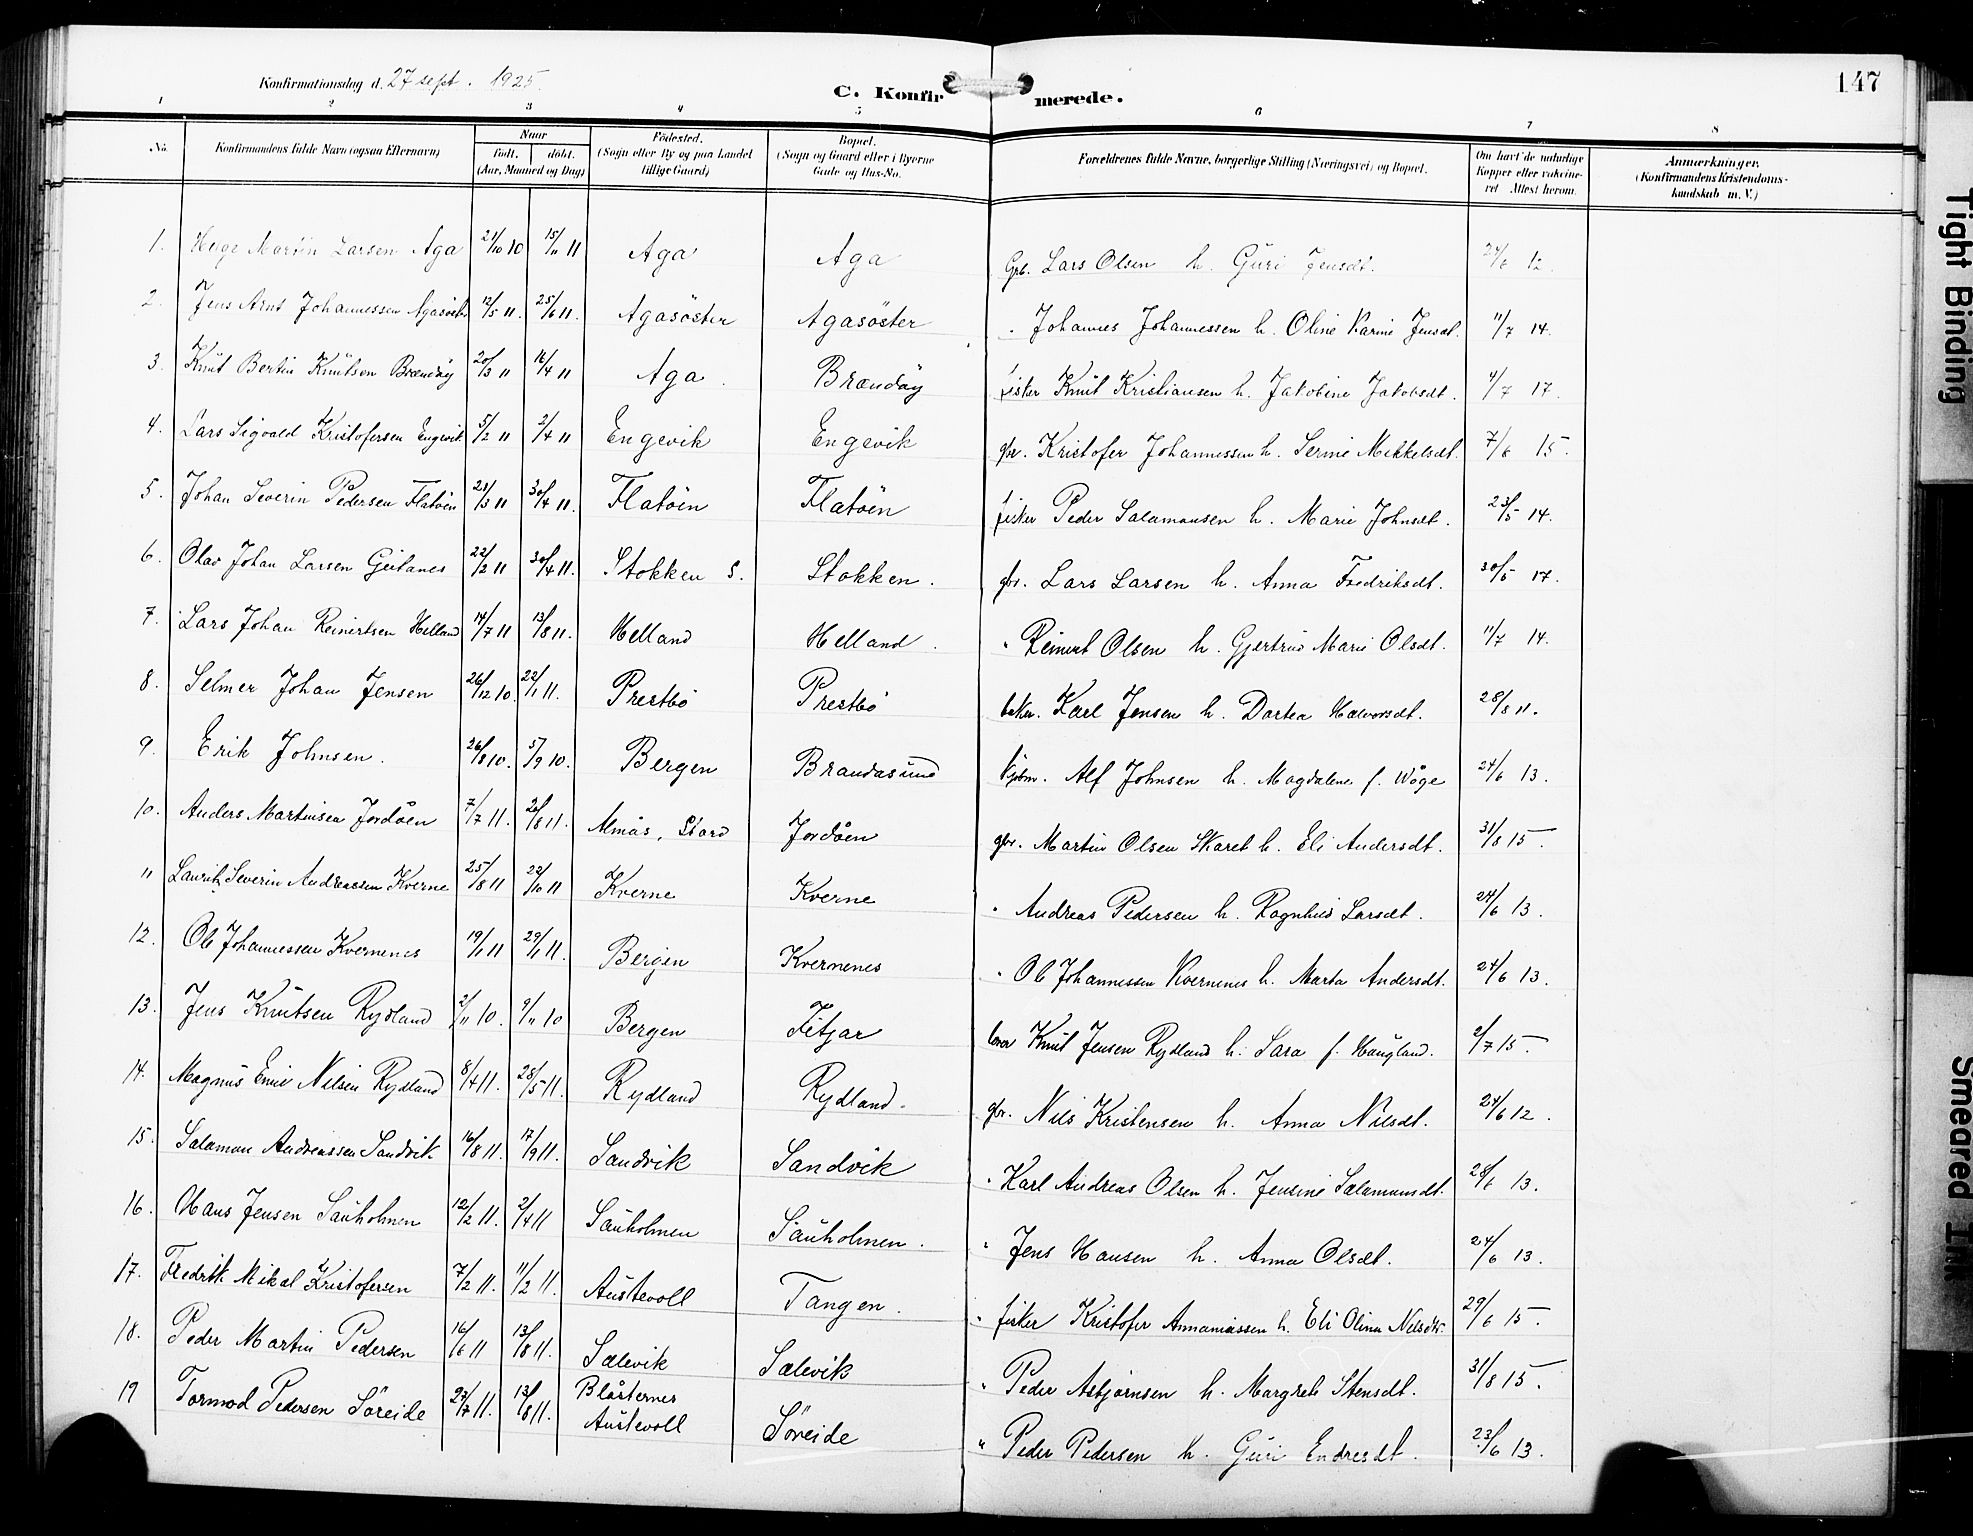 Konfirmationsdag d. 27 sept. 1925.
C. Konfirmerede.
147
1 2 3 4 5 6 7 8
No. | Konfirmandens fulde Navn (ogsaa Efternavn) | Naar födt. döbt. (Aar, Maaned og Dag) | Födested. (Sogn eller By og paa Landet tillige Gaard) | Bopæl. (Sogn og Gaard eller i Byerne Gade og Hus-No. | Forældrenes fulde Navne, borgerlige Stilling (Næringsvei) og Bopæl. | Om havt de naturlige Kopper eller vakcineret Attest herom. | Anmærkninger. (Konfirmandens Kristendomskundskab m. V.)
1. Hage Martin Larsen Aga 21/10 10 15/1 11 Aga Aga Grb. Lars Olsen h. Guri Jensdt. 24/6 12.
2. Jens Arnt Johannessen Agasöster 12/5 11. 25/6 11. Agasöster Agasöster " Johannes Johannessen h. Oline Karine Jensdt. 11/7 14.
3. Knut Bertin Knutsen Brandöy 20/3 11 16/4 11 Aga. Brandöy fisker Knut Kristiansen h. Jakobine Jakobsdt. 4/7 17.
4. Lars Sigvald Kristofersen Engevik 5/2 11 2/4 11 Engevik Engevik gbr. Kristofer Johannessen h. Serine Mikkelsdt. 7/6 15.
5. Johan Severin Pedersen Flatöen 21/3 11 30/4 11. Flatöen Flatöen fisker Peder Salamonsen h. Marie Johnsdt. 23/5 14.
6. Olav Johan Larsen Geitanes 22/2 11 30/4 11. Stokken S. Stokken. gbr. Lars Larsen h. Anna Fredriksdt. 30/6 17.
7. Lars Johan Reinertsen Helland 14/7 11 13/8 11. Helland Helland. " Reinert Olsen h. Gjertrud Marie Olsdt. 11/7 14.
8. Selmer Johan Jensen 26/12 10. 22/1 11. Prestbö Prestbö baker. Karl Jensen h. Dortea Halvorsdt. 28/8 11.
9. Erik Johnsen. 26/8 10. 5/9 10. Bergen Brandasund kjøbm. Alf Johnsen h. Magdalene f. Wåge 24/6 13.
10. Anders Martinsen Jordöen 7/7 11. 20/8 11. Almås, Stord Jordöen gbr. Martin Olsen Skaret h. Eli Andersdt. 31/8 15.
11 Laurits Severin Andreassen Kverne 25/8 11 22/10 11 Kverne Kverne " Andreas Pedersen h. Ragnhild Larsdt. 24/6 13.
12. Ole Johannessen Kvernenes 19/1 11 29/1 11. Bergen Kvernenes " Ole Johannessen Kvernenes h. Marta Andersdt. 24/6 13.
13. Jens Knutsen Rydland 2/11 10. 9/11 10 Bergen Fitjar Knut Jensen Rydland h. Sara f. Haugland. 2/7 15.
14. Magnus Emil Nilsen Rydland 8/4 11. 28/5 11. Rydland Rydland. gbr. Nils Kristensen h. Anna Nilsdt. 24/6 12.
15. Salamon Andreassen Sandvik 16/8 11. 17/9 11. Sandvik Sandvik " Karl Andreas Olsen h. Jensine Salamonsdt. 28/6 13.
16. Hans Jensen Sauholmen 12/2 11. 2/4 11 Sauholmen Sauholmen. " Jens Hansen h. Anna Olsdt. 24/6 13.
17. Fredrik Mikal Kristofersen 7/2 11. 11/2 11. Austevoll Tangen. " fisker Kristofer Annaniassen h. Eli Olina Nelsdtr. 29/6 15.
18. Peder Martin Pedersen 16/6 11 13/8 11. Sælevik Sælevik " Peder Asbjørnsen h. Margrete Stensdt. 31/8 15.
19 Tormod Pedersen Söreide 27/7 11. 13/8 11. Blåsternes Austevoll Söreide " Peder Pedersen h. Guri Endresdt. 23/6 13.
Tight Binding
Smeared Ink